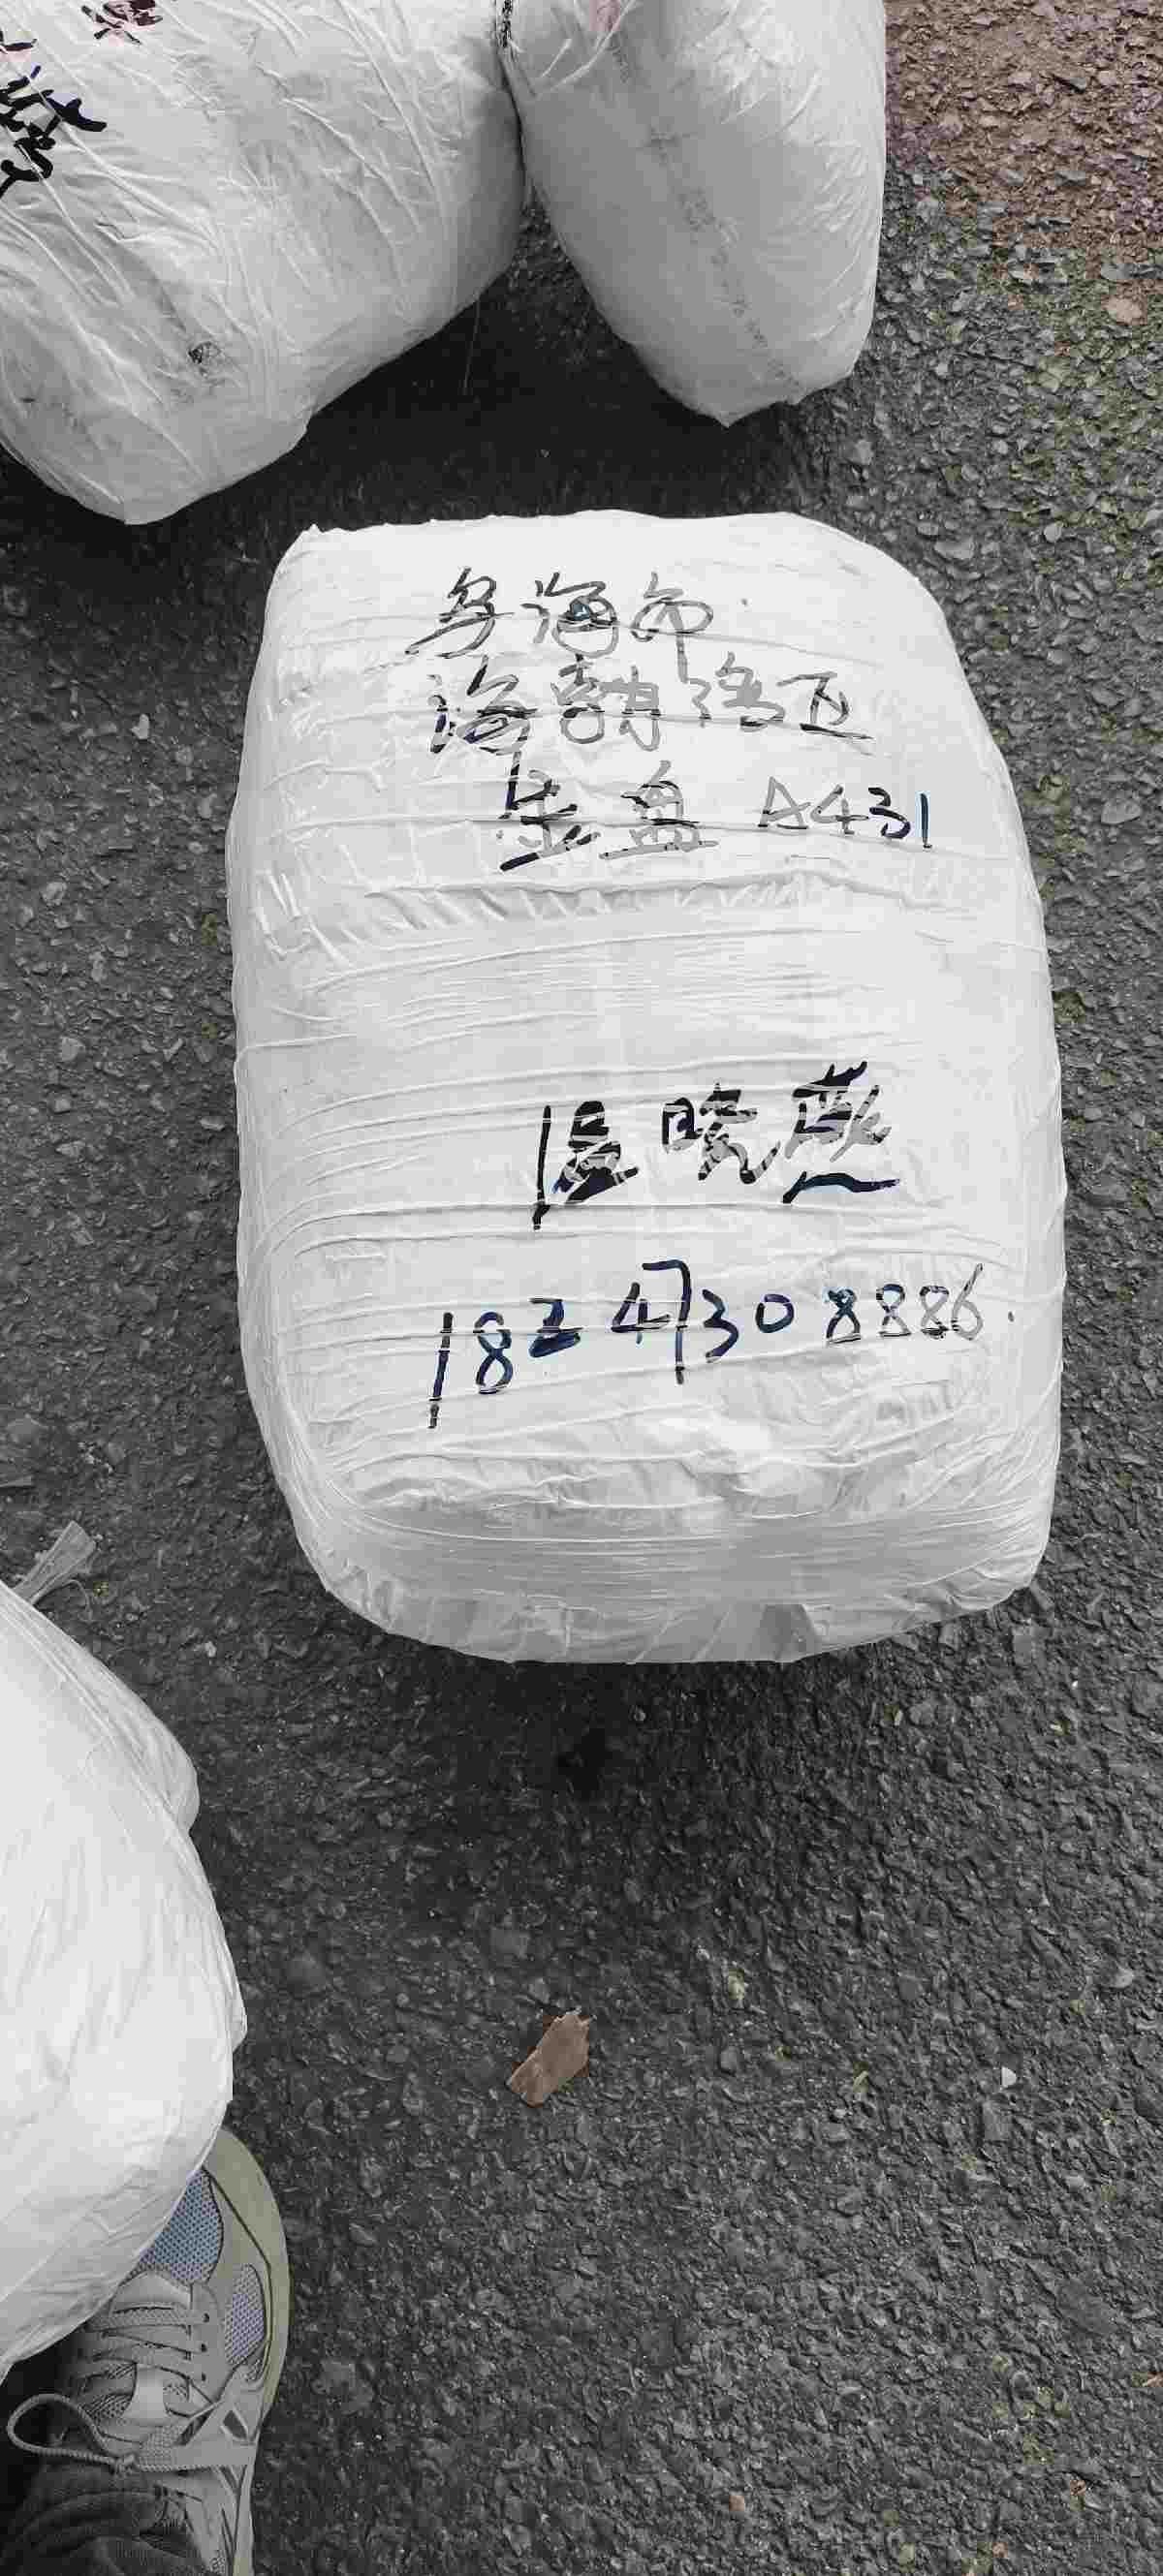 乌海市
海勃湾区
金盘 A431
温晓燕
18247308886.